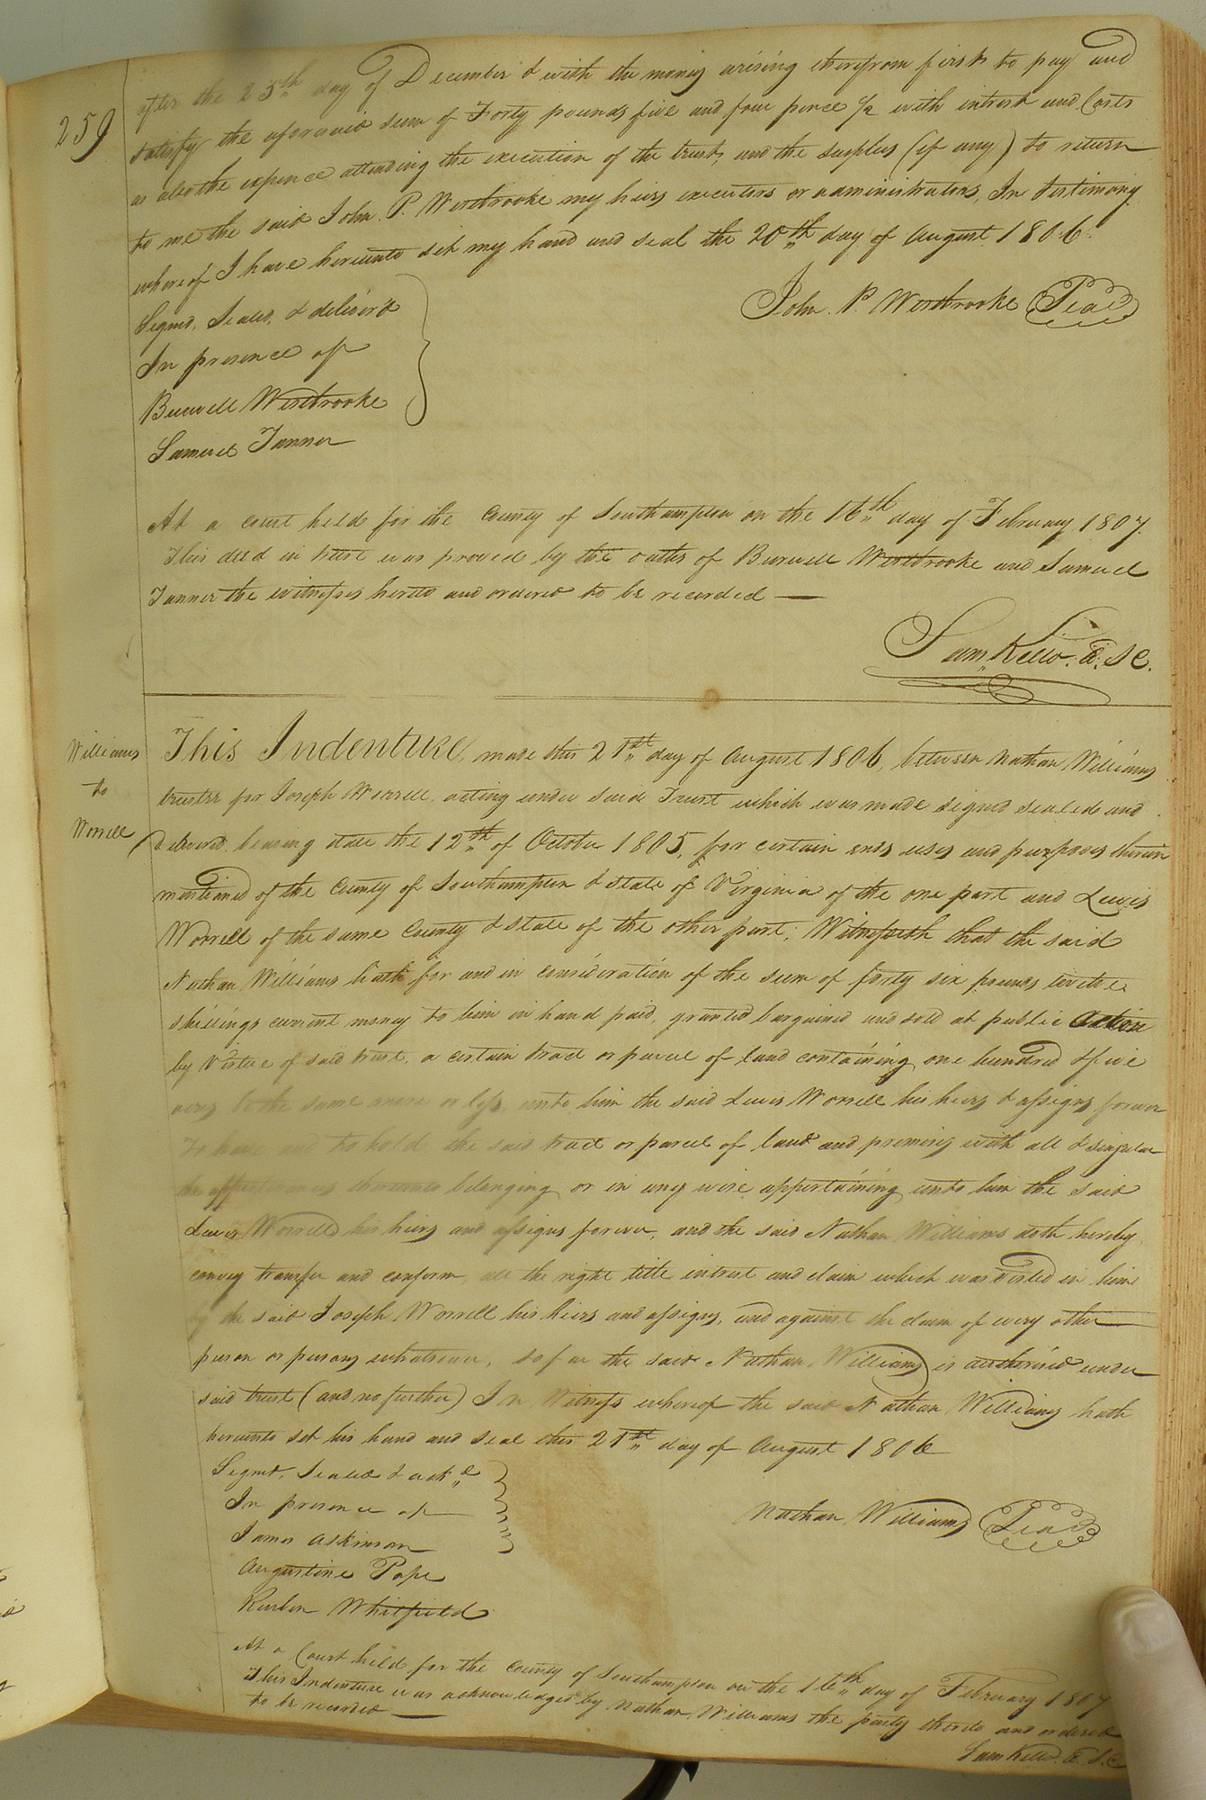 259
after the 25th day of December & with the money arising therefrom first to pay and
satisfy the aforesaid sum of Forty pounds five and four pence 1/2 with intrest and Costs
as also the expence attending the execution of the trust, and the surplus (if any) to return
to me the said John. P. Westbrooke my heirs executors or administrators, In testimony
whereof I have hereunto set my hand and seal the 20th day of August 1806.
John. P. Westbrooke Seal
Signed, Sealed, & deliver'd
In presence of
Burwell Westbrooke
Samuel Tanner
At a court held for the County of Southampton on the 16th day of February 1807.
This deed in trust was proved by the oaths of Burwell Westbrooke and Samuel
Tanner the witnesses hereto and ordered to be recorded —
Sam. Kello. S C.
Williams
to
Worrell
This Indenture, made this 21st day of August 1806, between Nathan Williams
trustee for Joseph Worrell, acting under said Trust which was made signed sealed and
delivered, bearing date the 12th of October 1805, for certain ends uses and purposes therein
mentioned of the County of Southampton & State of Virginia of the one part and Lewis
Worrell of the same County & State of the other part; Witnesseth that the said
Nathan Williams hath for and in consideration of the sum of forty six pounds twelve
shillings current money to him in hand paid, granted bargained and sold at public
by Virtue of said trust, a certain tract or parcel of land containing one hundred & five
acres be the same more or less, unto him the said Lewis Worrell his heirs & assigns forever
To have and to hold the said tract or parcel of land and premises with all & singular
the appurtenances thereunto belonging or in any wise appertaining unto him the said
Lewis Worrell his heirs and assigns forever, and the said Nathan Williams doth hereby
convey transfer and conform, all the right title intrest and claim which was vested in him
by the said Joseph Worrell his heirs and assigns, and against the claim of every other
person or persons whatsoever, so far as the said Nathan Williams is authorised under
said trust (and no further) In Witness whereof the said Nathan Williams hath
hereunto set his hand and seal this 21st day of August 1806
Nathan Williams Seal
Signed, Sealed & ackd
In presence of
James Askinson
Augustine Pope
Reuben Whitfield
At a Court held for the County of Southampton on the 16th day of February 1807
This Indenture was acknowledged by Nathan Williams the party thereto and ordered
to be recorded —
Sam Kello. S. C